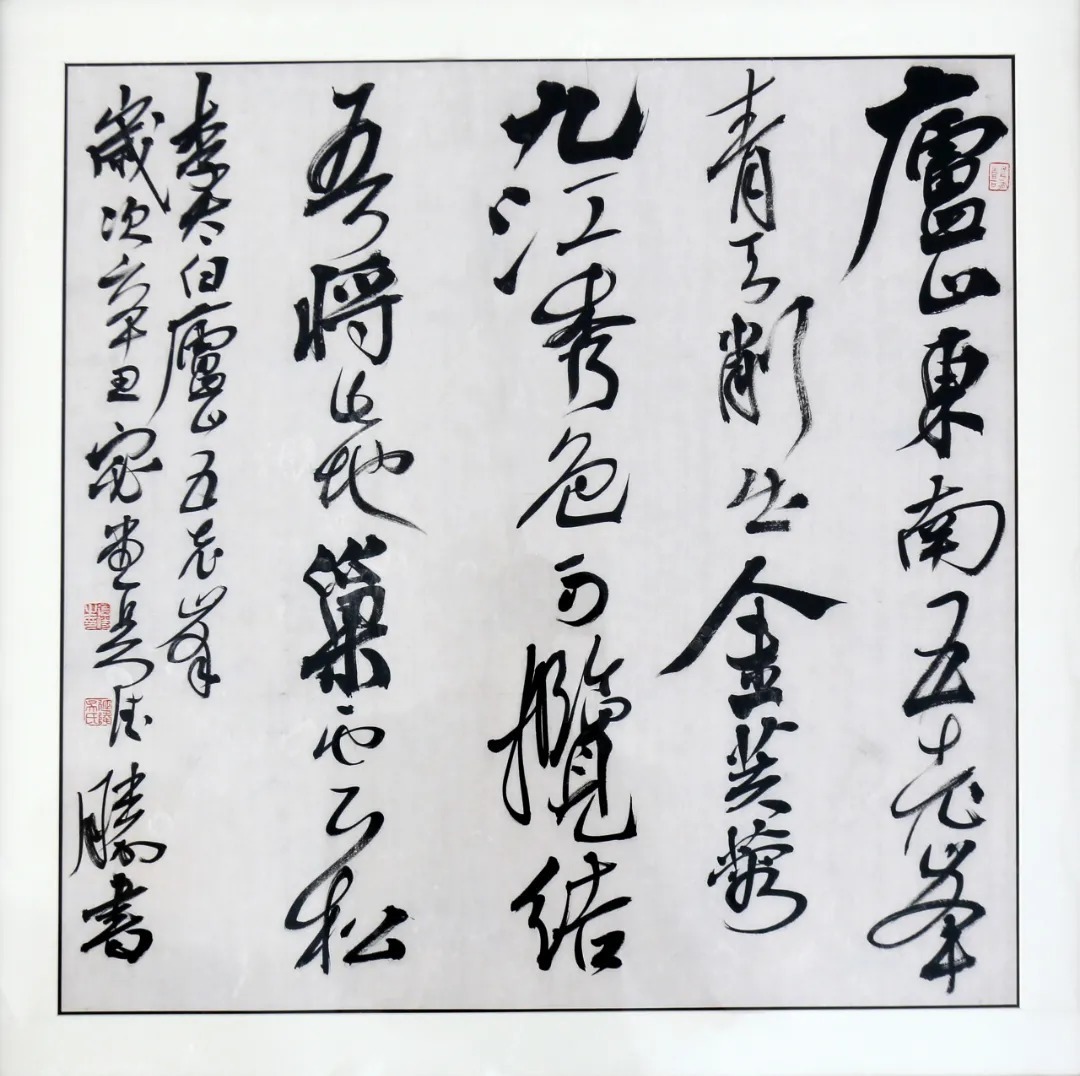 廬山東南五老峯
青天削出金芙蓉
九江秀色可攬結
吾將此地巢雲松
李太白廬山五老峯
歲次辛丑勝書